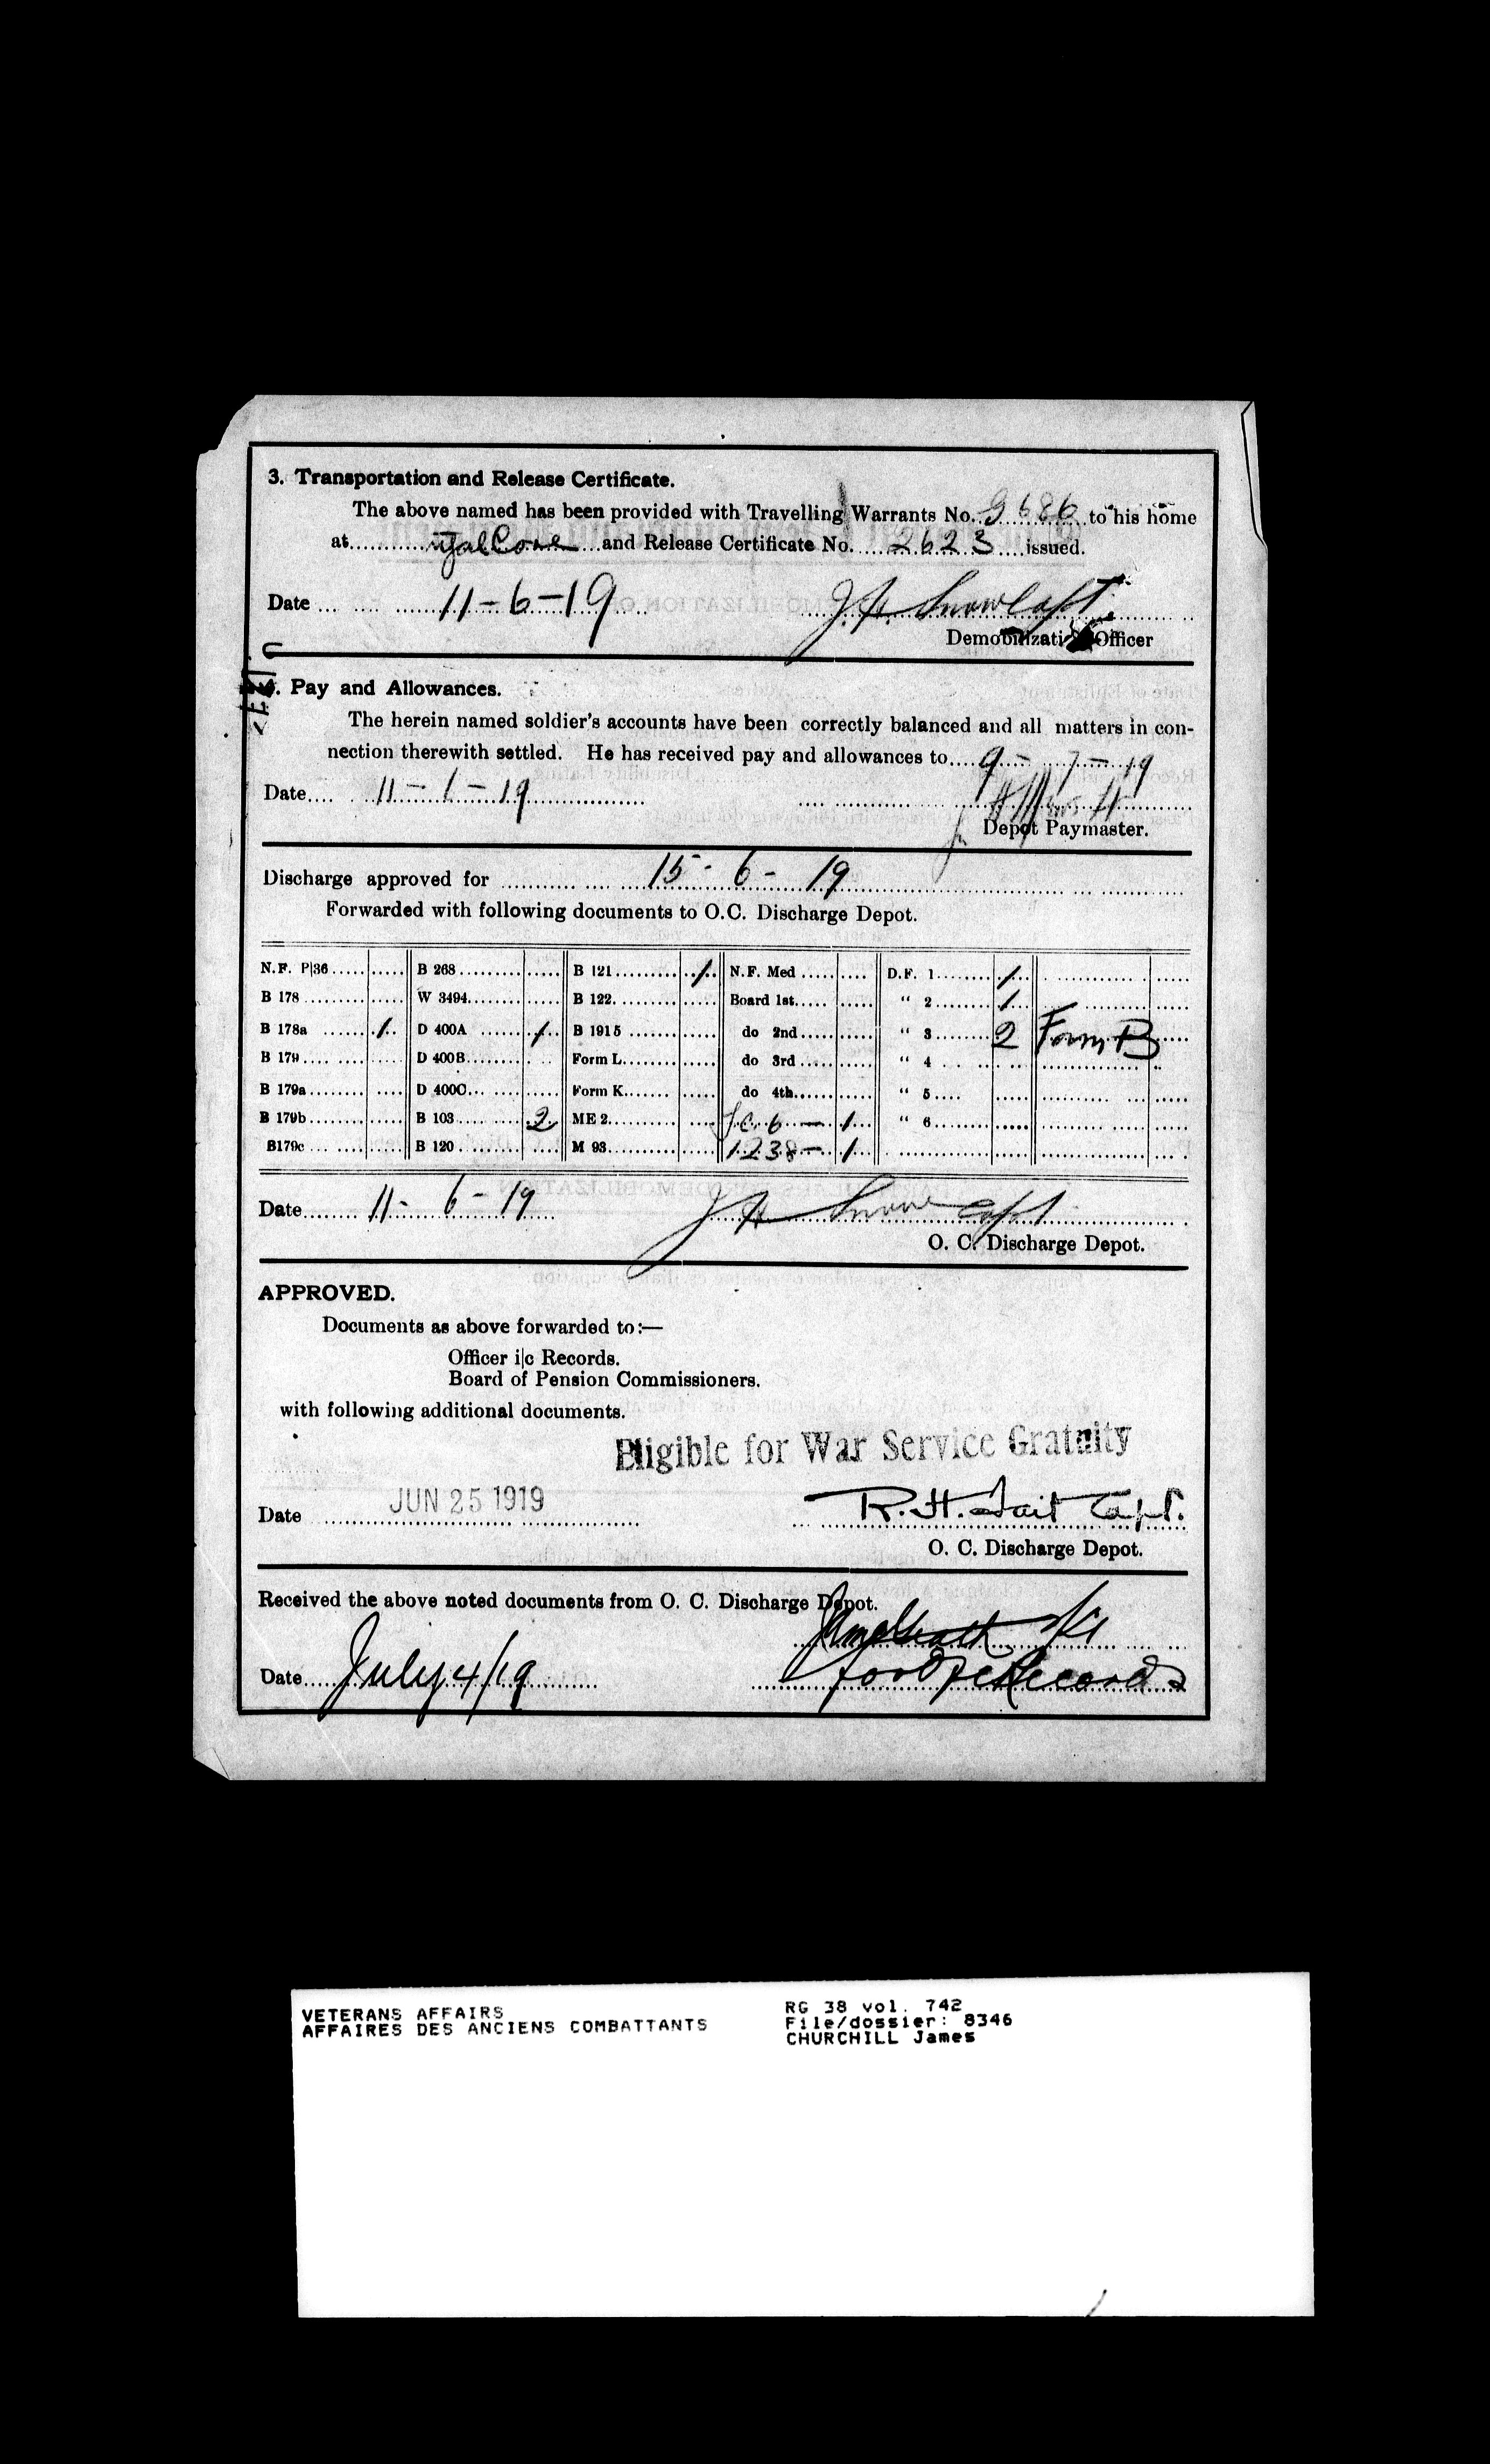 3. Transportation and Release Certificate.
The above named has been provided with Travelling Warrants No. 9686 to his home
at Cove and Release Certificate No. 2623 issued.
Date 11-6-19 J.H. Snow Capt.
Demobilization Officer
Pay and Allowances.
The herein named soldier's accounts have been correctly balanced and all matters in con-
nection therewith settled. He has received pay and allowances to 9-7-19
Date 11-6-19
Depot Paymaster.
Discharge approved for 15-6-19
Forwarded with following documents to O.C. Discharge Depot.
N.F. P|36 B 268 B 121 1 N.F. Med D.F. 1 1
B 178 W 3494 B 122 Board 1st " 2 1
B 178a 1 D 400A 1 B 1915 do 2nd " 3 2 Form B
B 179 D 400B Form L do 3rd " 4
B 179a D 400C Form K do 4th " 5
B 179b B 103 2 ME 2 6 - 1 " 6
B179c B 120 M 93 1238 - 1
Date 11-6-19 J H Snow Capt
O. C. Discharge Depot.
APPROVED.
Documents as above forwarded to:—
Officer i|c Records.
Board of Pension Commissioners.
with following additional documents.
Eligible for War Service Gratuity
Date JUN 25 1919 R.H. Tait Capt.
O. C. Discharge Depot.
Received the above noted documents from O. C. Discharge Depot.
Date July 4/19 for Records
VETERANS AFFAIRS
AFFAIRES DES ANCIENS COMBATTANTS
RG 38 vol. 742
File/dossier: 8346
CHURCHILL James